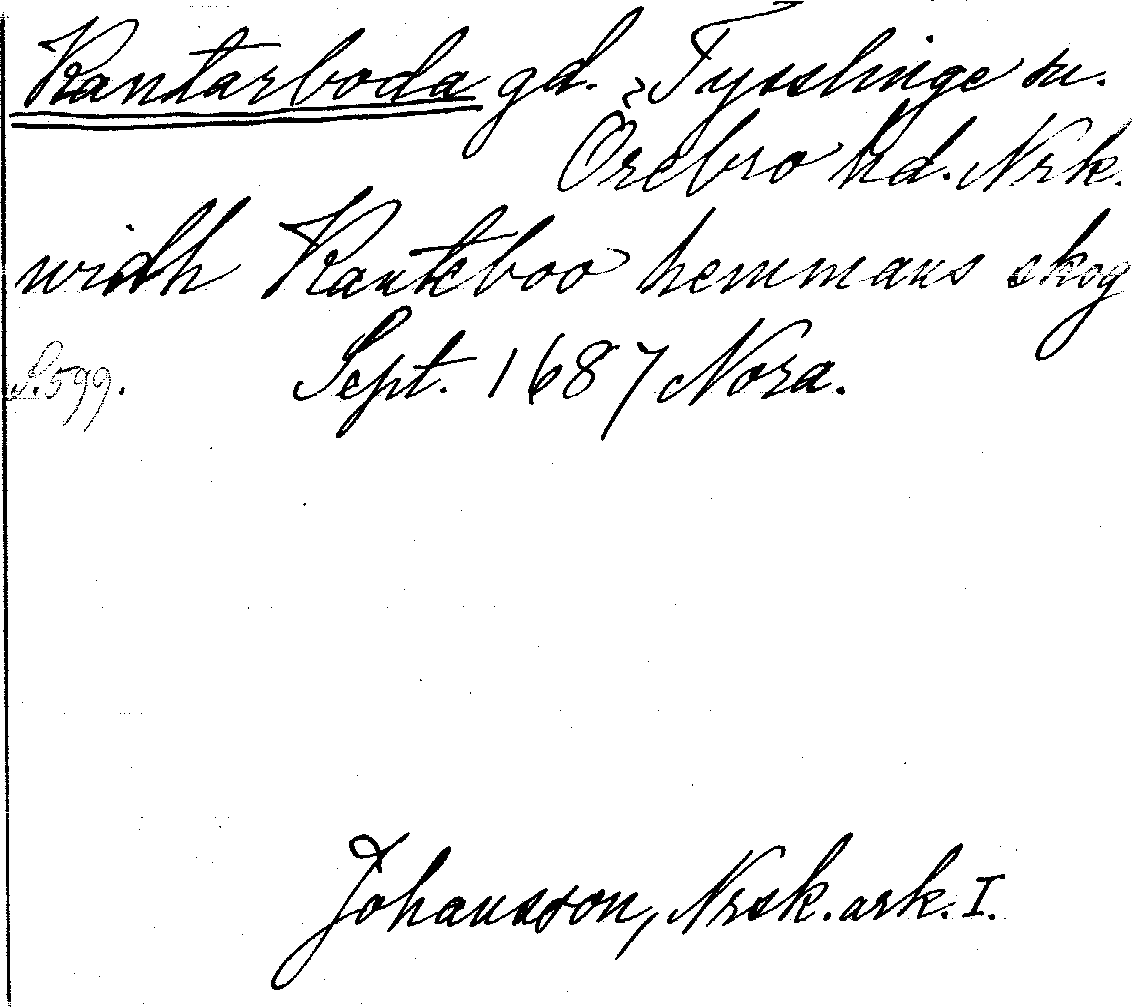 Kantarboda gd. Tysslinge sn.
Örebro hd. Nrk.
widh Kanteboo hemmans skog
S. 599. Sept. 1687 Nora.
Johansson, Nrsk. ark. I.